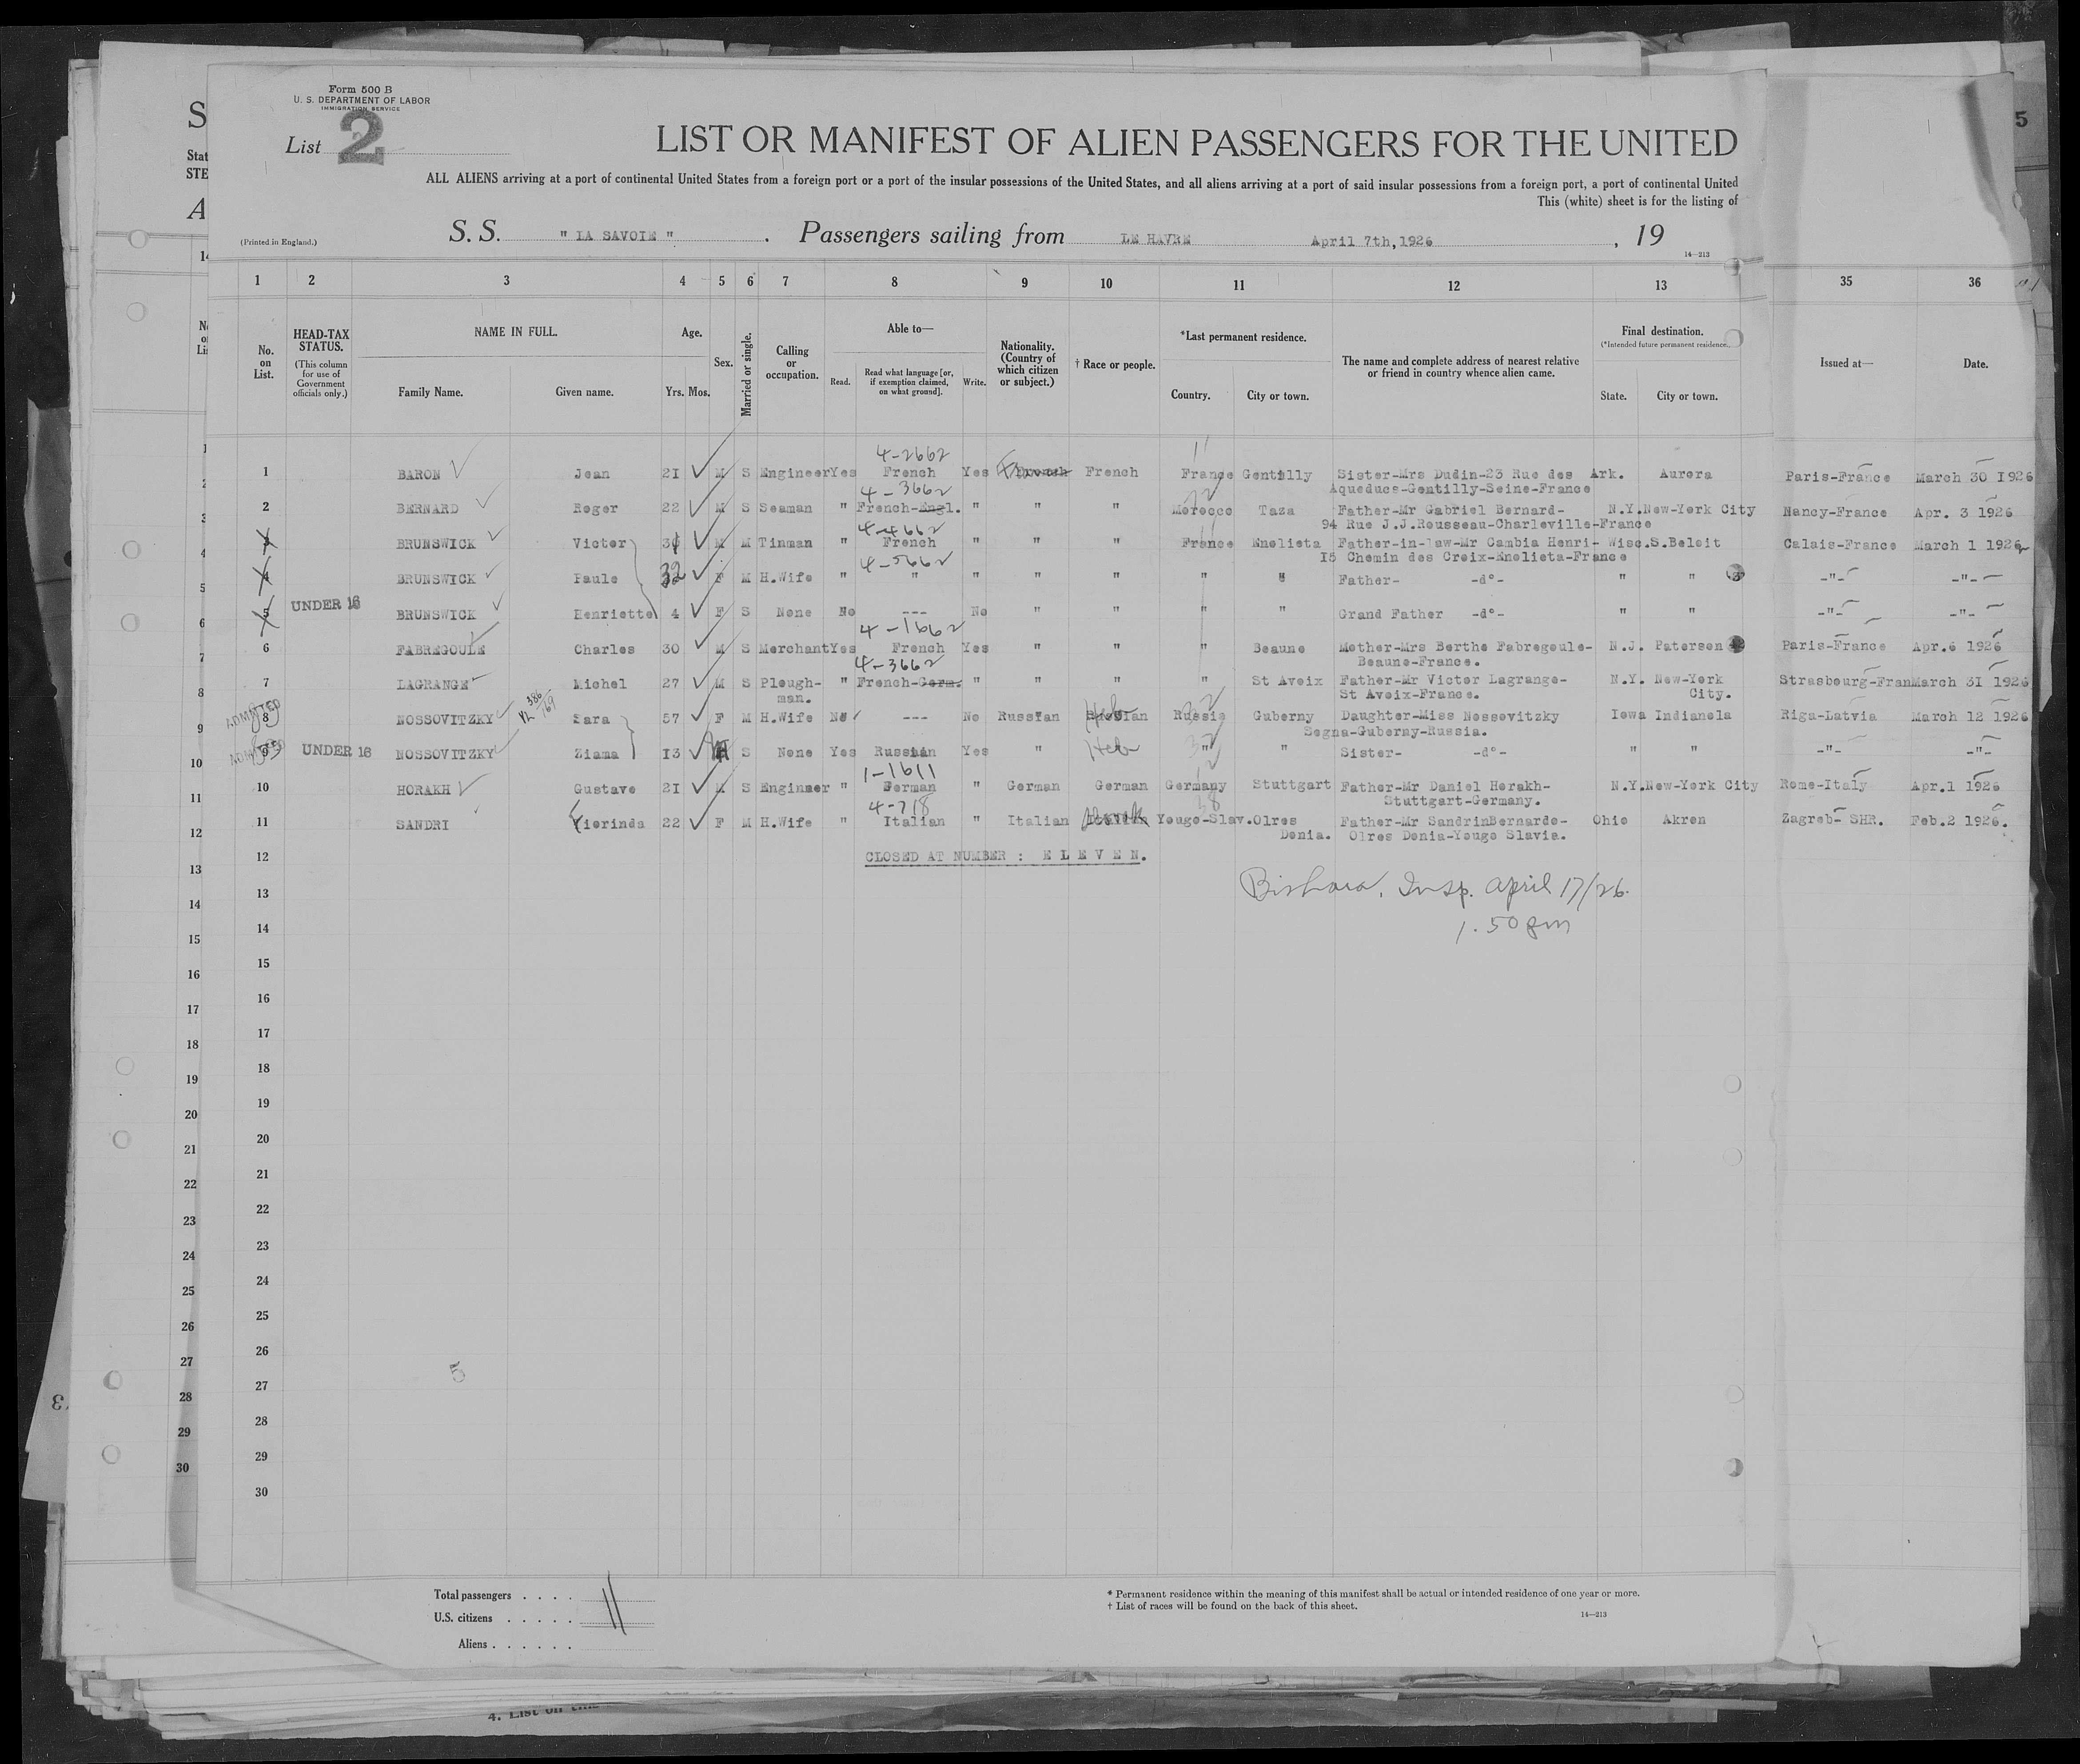 Form 500 B
U. S. DEPARTMENT OF LABOR
IMMIGRATION SERVICE
List 2
LIST OR MANIFEST OF ALIEN PASSENGERS FOR THE UNITED
ALL ALIENS arriving at a port of continental United States from a foreign port or a port of the insular possessions of the United States, and all aliens arriving at a port of said insular possessions from a foreign port, a port of continental United
This (white) sheet is for the listing of
(Printed in England.)
S. S. " LA SAVOIE " . Passengers sailing from LE HAVRE April 7th,1926 , 19
14—213
1 2 3 4 5 6 7 8 9 10 11 12 13 35 36
No. on List.
HEAD-TAX STATUS.
(This column for use of Government officials only.)
NAME IN FULL.
Family Name. Given name.
Age.
Yrs. Mos.
Sex.
Married or single.
Calling or occupation.
Able to—
Read. Read what language [or, if exemption claimed, on what ground]. Write.
Nationality. (Country of which citizen or subject.)
† Race or people.
*Last permanent residence.
Country. City or town.
The name and complete address of nearest relative or friend in country whence alien came.
Final destination.
(*Intended future permanent residence.
State. City or town.
Issued at— Date.
4-2662
1 BARON Jean 21 M S Engineer Yes French Yes French French France Gentilly Sister-Mrs Dudin-23 Rue des Ark. Aurora Paris-France March 30 1926
Aqueducs-Gentilly-Seine-France
4-3662
2 BERNARD Roger 22 M S Seaman " French-Engl. " " " Morocco Taza Father-Mr Gabriel Bernard- N.Y. New-York City Nancy-France Apr. 3 1926
94 Rue J.J.Rousseau-Charleville-France
4-4662
3 BRUNSWICK Victor M M Tinman " French " " " France Enolieta Father-in-law-Mr Cambia Henri- Wisc. S.Beloit Calais-France March 1 1926
15 Chemin des Croix-Enolieta-France
4-5662
4 BRUNSWICK Paule 32 F M H.Wife " " " " " " " Father- -d°- " " -"- -"-
5 UNDER 16 BRUNSWICK Henriette 4 F S None No --- No " " " " Grand Father -d°- " " -"- -"-
4-1662
6 FABREGOULE Charles 30 M S Merchant Yes French Yes " " " Beaune Mother-Mrs Berthe Fabregoule- N.J. Paterson Paris-France Apr.6 1926
Beaune-France.
4-3662
7 LAGRANGE Michel 27 M S Plough- " French-Germ. " " " " St Avoix Father-Mr Victor Lagrange- N.Y. New-York Strasbourg-Fran March 31 1926
man. St Avoix-France. City.
ADMITTED
8 NOSSOVITZKY Sara 57 F M H.Wife No --- No Russian Heb Russia Guberny Daughter-Miss Nossovitzky Iowa Indianola Riga-Latvia March 12 1926
Segna-Guberny-Russia.
ADMITTED
9 UNDER 16 NOSSOVITZKY Ziama 13 S None Yes Russian Yes " Heb " " Sister- -d°- " " -"- -"-
1-1611
10 HORAKH Gustave 21 M S Enginner " German " German German Germany Stuttgart Father-Mr Daniel Horakh- N.Y. New-York City Rome-Italy Apr.1 1926
Stuttgart-Germany.
4-718
11 SANDRI Fiorinda 22 F M H.Wife " Italian " Italian Yougo-Slav. Olres Father-Mr SandrinBernardo- Ohio Akron Zagreb- SHR. Feb.2 1926.
Donia. Olres Donia-Yougo Slavia.
12 CLOSED AT NUMBER : E L E V E N.
13
Insp. April 17/26.
14
1.50 pm
15
16
17
18
19
20
21
22
23
24
25
26
27
28
29
30
5
Total passengers . . . . 11
U.S. citizens . . . . .
Aliens . . . . . .
* Permanent residence within the meaning of this manifest shall be actual or intended residence of one year or more.
† List of races will be found on the back of this sheet.
14—213